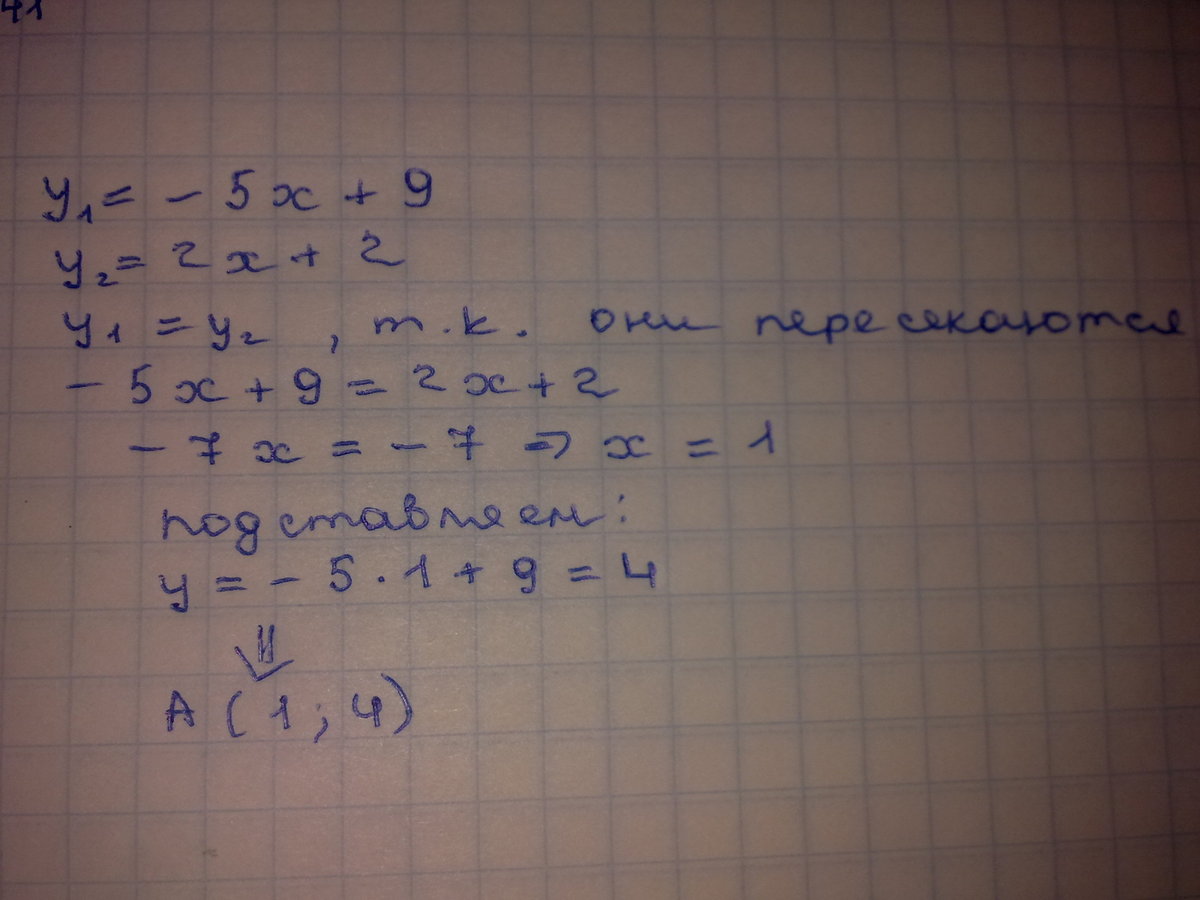 41
y₁ = - 5x + 9
y₂ = 2x + 2
y₁ = y₂ , т.к. они пересекаются
- 5x + 9 = 2x + 2
- 7x = - 7 => x = 1
подставляем:
y = - 5 · 1 + 9 = 4
⇓
A (1; 4)